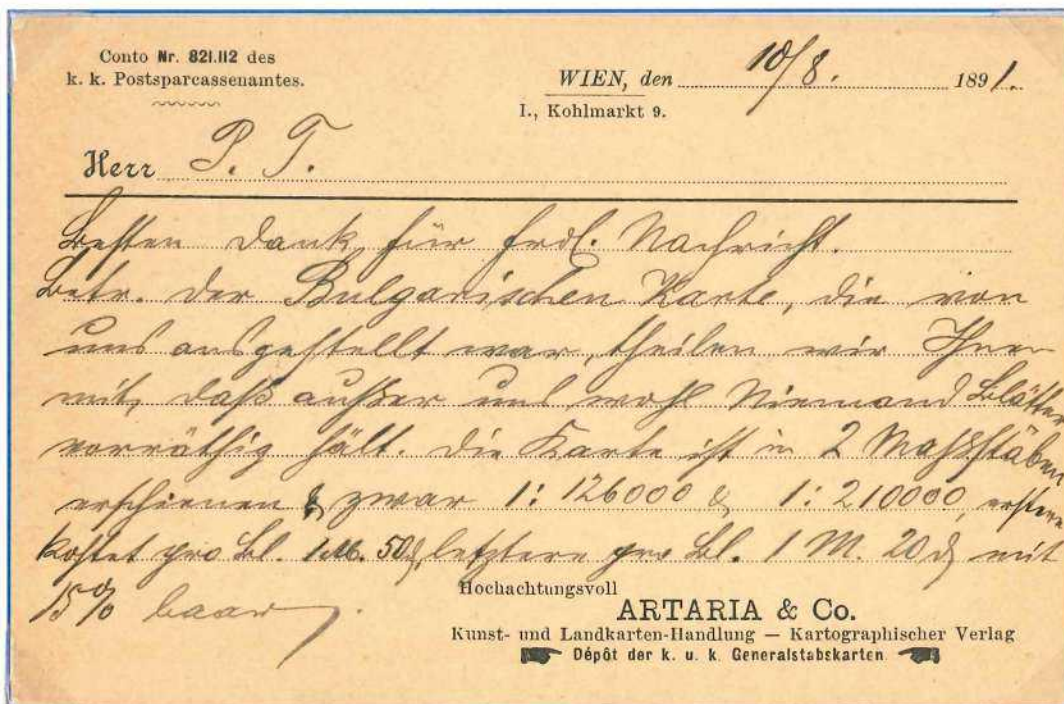 Conto Nr. 821.112 des
k. k. Postsparcassenamtes.
WIEN, den 10/8. 1891.
I., Kohlmarkt 9.
Herr P. T.
Besten Dank für frdl. Nachricht.
Betr. der Bulgarischen Karte, die von
uns ausgestellt war, theilen wir Ihnen
mit, daß außer uns wohl Niemand Blätter
vorräthig hält. Die Karte ist in 2 Maßstäben
erschienen & zwar 1: 126000 & 1: 210000, erstere
kostet pro Bl. 1 M. 50 ₰, letztere pro Bl. 1 M. 20 ₰ mit
15% baar.
Hochachtungsvoll
ARTARIA & Co.
Kunst- und Landkarten-Handlung — Kartographischer Verlag
Dépôt der k. u. k. Generalstabskarten